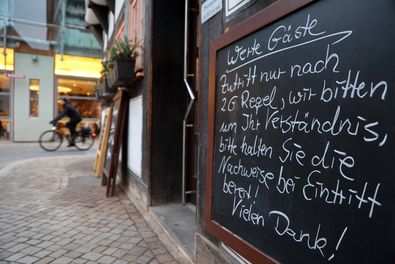 Werte Gäste
Zutritt nur nach
2G Regel, wir bitten
um Ihr Verständnis,
bitte halten Sie die
Nachweise bei Eintritt
bereit.
Vielen Dank!